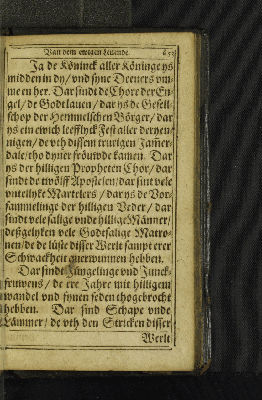 Van dem ewigen Levende.
Ja de Köninck aller Köninge ys
midden in dy / vnd syne Deeners vm-
me en her. Dar sindt de Chore der En-
gel / de Godt lauen / dar ys de Gesell-
schop der Hemmelschen Börger / dar
ys ein ewich leefflyck Fest aller deryen-
nigen / de vth dissem trurigen Jamer-
dale / tho dyner fröuwde kamen. Dar
ys der hilligen Propheten Chor / dar
sindt de twölff Aposteln / dar sint vele
vntellyke Martelers / dar ys de Vor-
sammelinge der hilligen Veder / dar
sindt vele salige vnde hillige Männer /
deßgelyken vele Godtsalige Matro-
nen / de de lüste disser Werlt sampt erer
Schwackheit auerwunnen hebben.
Dar sindt Jüngelinge vnd Junck-
fruwens / de ere Jahre mit hilligem
wandel vnd fynen seden thogebrocht
hebben. Dar sind Schape vnde
Lämmer / de vth den Stricken disser
Werlt